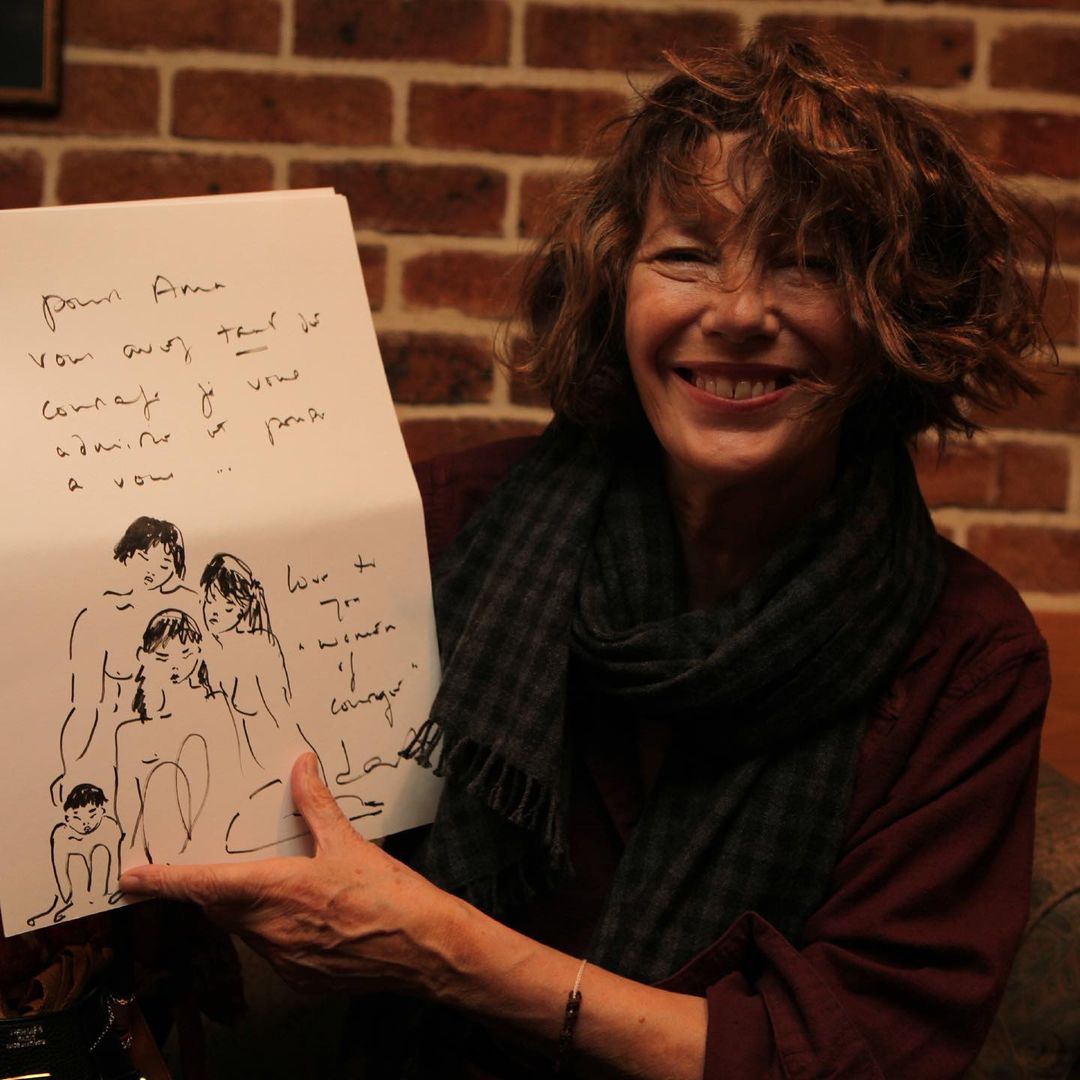 pour Anna
vous avez tant de
courage je vous
admire et pense
à vous ...
love to
you
"women
of
courage"